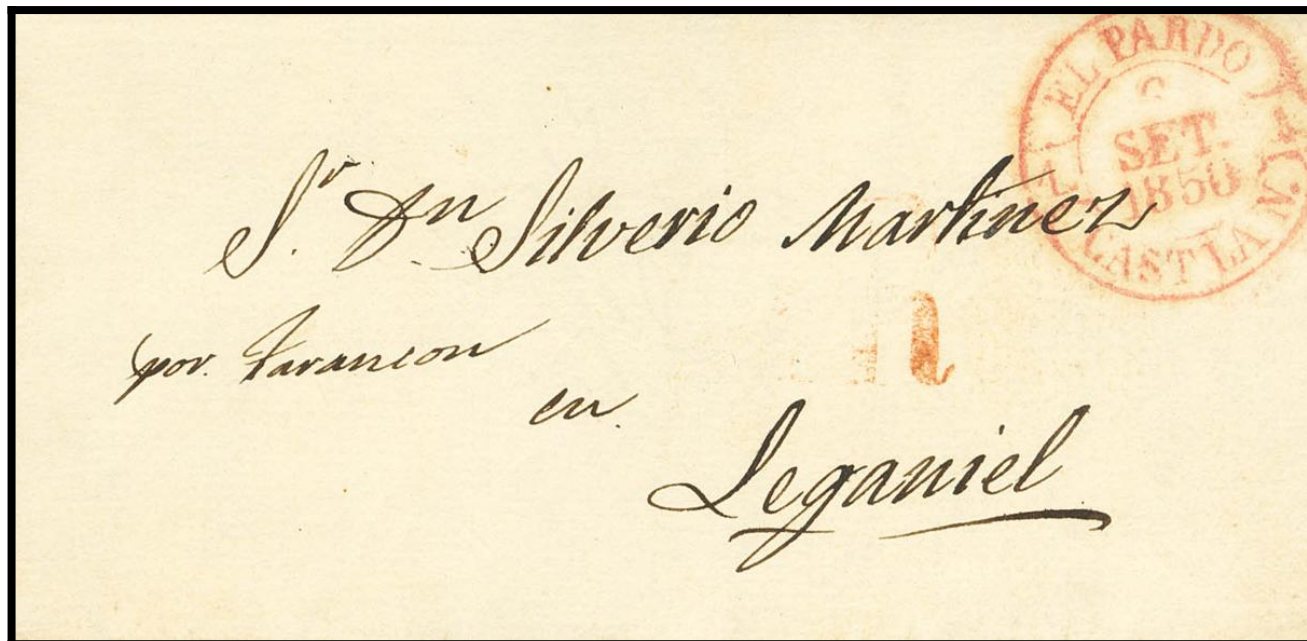 EL PARDO
SET.
1850
CAST LA N
Sr. Dn. Silverio Martinez
por. Tarancon
en.
Leganiel